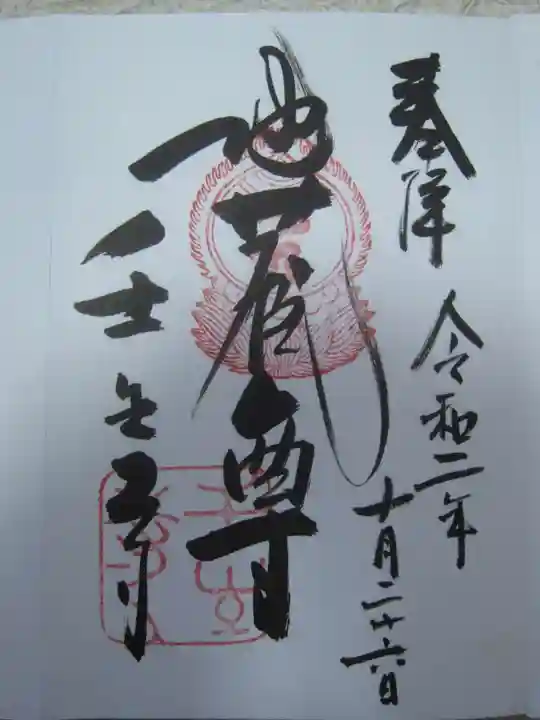 奉拝
令和二年
十月二十六日
地蔵尊
壬生寺